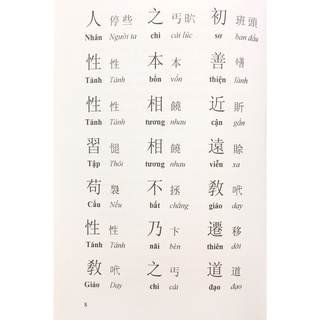 人 停些 之 丐 初 班頭
Nhân Người ta chi cái lúc sơ ban đầu
性 性 本 本 善
Tánh Tánh bổn vốn thiện lành
性 性 相 饒 近 𧵆
Tánh Tánh tương nhau cận gần
習 相 饒 遠 賖
Tập Thói tương nhau viễn xa
苟 裊 不 拯 教 𠰺
Cẩu Nếu bất chăng giáo dạy
性 性 乃 卞 遷 移
Tánh Tánh nãi bèn thiên dời
教 𠰺 之 丐 道 道
Giáo Dạy chi cái đạo đạo
8